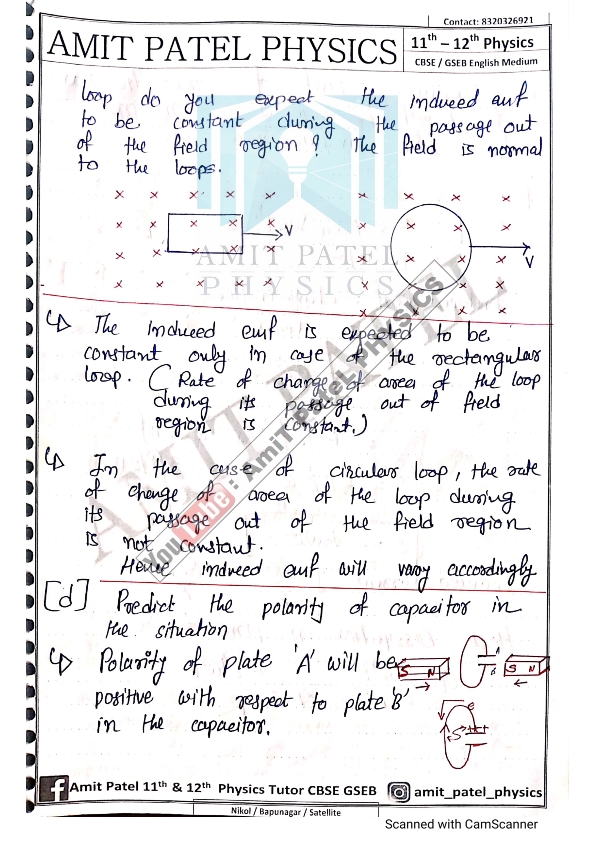 Contact: 8320326921
AMIT PATEL PHYSICS
11th – 12th Physics
CBSE / GSEB English Medium
loop do you expect the induced emf
to be constant during the passage out
of the field region? The field is normal
to the loops.
V
V
AMIT PATEL
PHYSICS
↳ The induced emf is expected to be
constant only in case of the rectangular
loop. (Rate of change of area of the loop
during its passage out of field
region is constant.)
↳ In the case of circular loop, the rate
of change of area of the loop during
its passage out of the field region
is not constant.
Hence induced emf will vary accordingly
[d] Predict the polarity of capacitor in
the situation
↳ Polarity of plate 'A' will be
positive with respect to plate 'B'
in the capacitor.
S N
A
B
S N
S
YouTube : Amit Patel Physics
AMIT PATEL
Amit Patel 11th & 12th Physics Tutor CBSE GSEB
amit_patel_physics
Nikol / Bapunagar / Satellite
Scanned with CamScanner